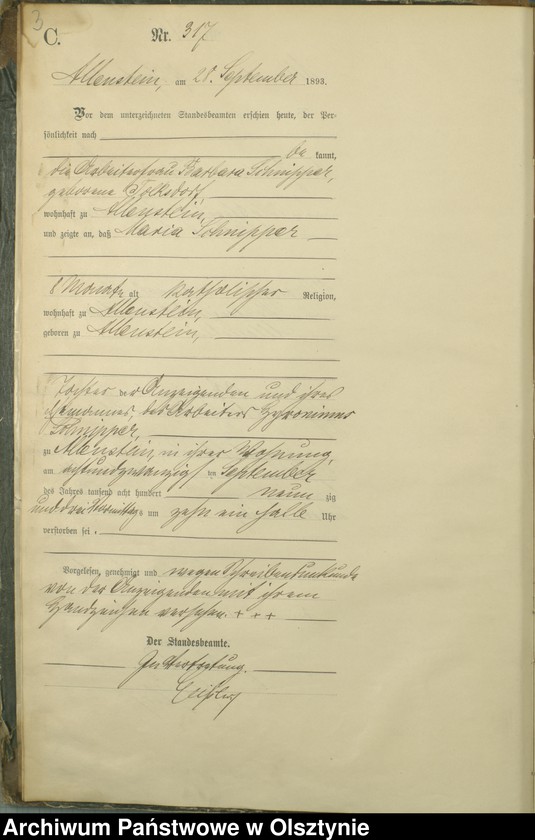 3
C. Nr. 317
Allenstein, am 28. September 1893.
Vor dem unterzeichneten Standesbeamten erschien heute, der Per-
sönlichkeit nach
be kannt,
die Arbeiterfrau Barbara Schnipper,
geborene Wolksdorf
wohnhaft zu Allenstein,
und zeigte an, daß Maria Schnipper
8 Monate alt katholischer Religion,
wohnhaft zu Allenstein,
geboren zu Allenstein,
Tochter der Anzeigenden und ihres
Ehemannes, des Arbeiters Hyronimus
Schnipper,
zu Allenstein, in ihrer Wohnung,
am achtundzwanzigsten September
des Jahres tausend acht hundert neun zig
und drei Vormittags um zehn ein halb Uhr
verstorben sei.
Vorgelesen, genehmigt und wegen Schreibensunkunde
von der Anzeigenden mit ihrem
Handzeichen versehen. + + +
Der Standesbeamte.
In Vertretung.
Archiwum Państwowe w Olsztynie